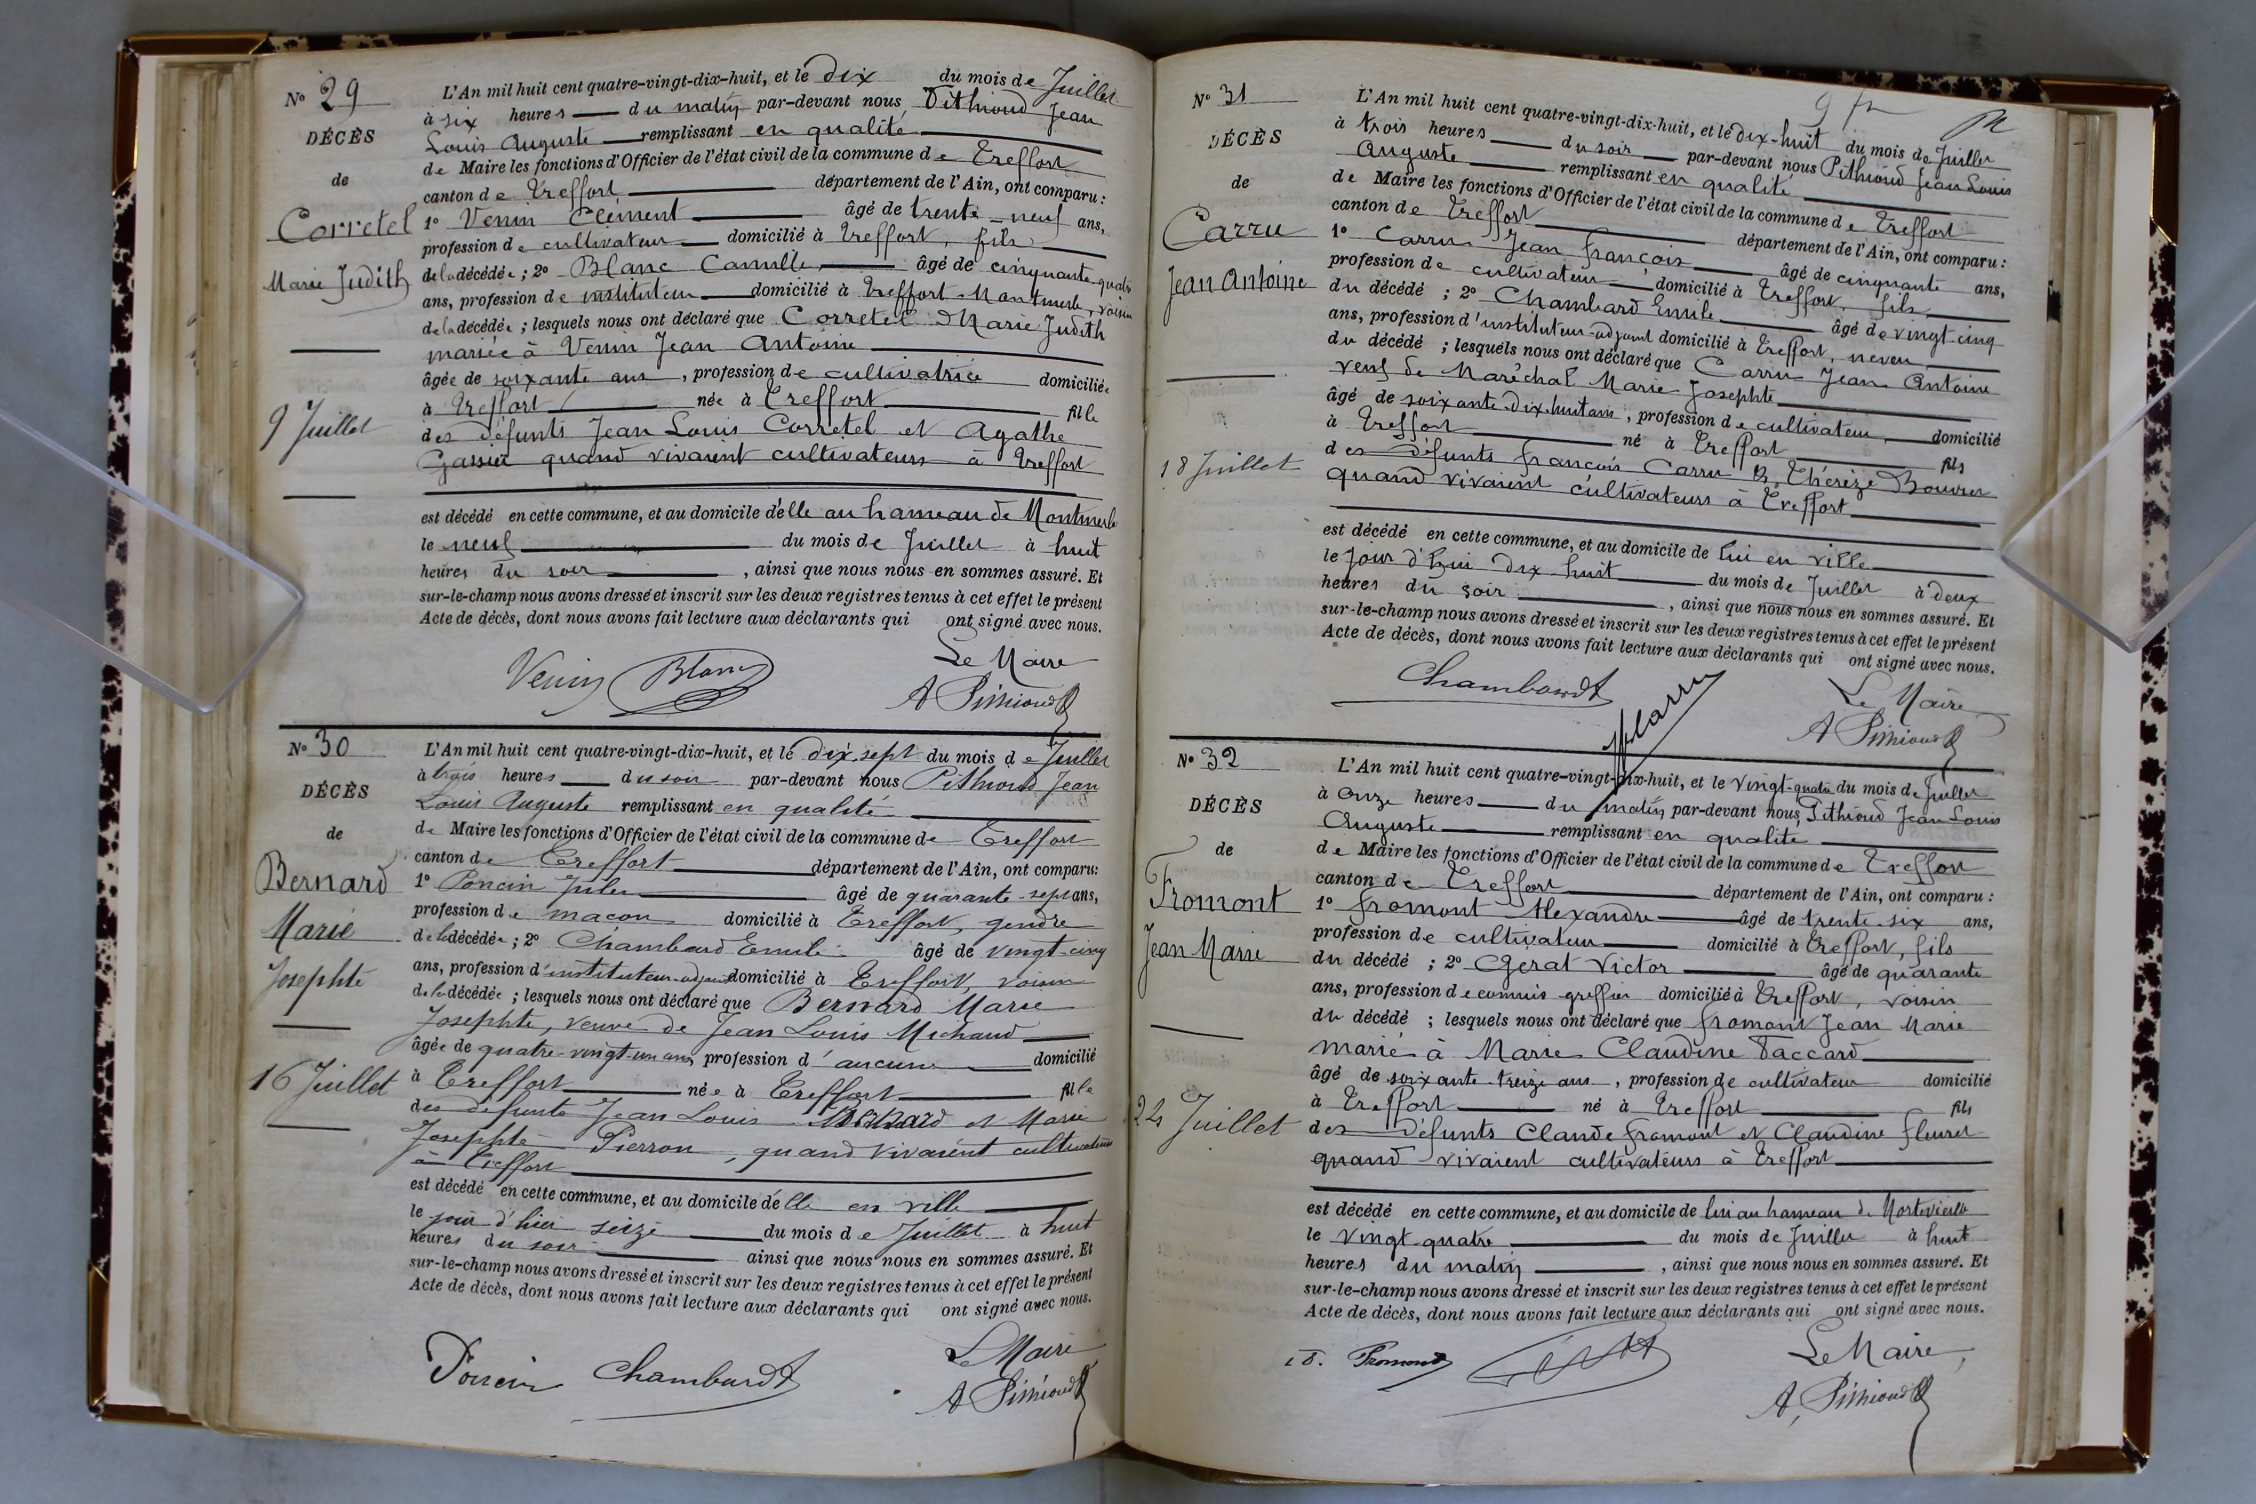 N° 29
DÉCÈS
de
Corretel
Marie Judith
9 Juillet
L'An mil huit cent quatre-vingt-dix-huit, et le dix du mois de Juillet
à six heures du matin par-devant nous Pithioud Jean
Louis Auguste remplissant en qualité
de Maire les fonctions d'Officier de l'état civil de la commune de Treffort
canton de Treffort département de l'Ain, ont comparu :
1° Venin Clément âgé de trente-neuf ans,
profession de cultivateur domicilié à Treffort, fils
de la décédée ; 2° Blanc Camille âgé de cinquante-quatre
ans, profession de instituteur domicilié à Treffort-Montmerle, voisin
de la décédée ; lesquels nous ont déclaré que Corretel Marie Judith
mariée à Venin Jean Antoine
âgée de soixante ans, profession de cultivatrice domiciliée
à Treffort née à Treffort fille
des défunts Jean Louis Corretel et Agathe
quand vivaient cultivateurs à Treffort
est décédé en cette commune, et au domicile d'elle au hameau de Montmerle
le neuf du mois de Juillet à huit
heures du soir, ainsi que nous nous en sommes assuré. Et
sur-le-champ nous avons dressé et inscrit sur les deux registres tenus à cet effet le présent
Acte de décès, dont nous avons fait lecture aux déclarants qui ont signé avec nous.
Venin Blanc Le Maire
A Pithioud
N° 30
DÉCÈS
de
Bernard
Marie
Josephte
16 Juillet
L'An mil huit cent quatre-vingt-dix-huit, et le dix-sept du mois de Juillet
à trois heures du soir par-devant nous Pithioud Jean
Louis Auguste remplissant en qualité
de Maire les fonctions d'Officier de l'état civil de la commune de Treffort
canton de Treffort département de l'Ain, ont comparu :
1° Poncin Jules âgé de quarante-sept ans,
profession de maçon domicilié à Treffort, gendre
de la décédée ; 2° Chambard Emile âgé de vingt-cinq
ans, profession d'instituteur-adjoint domicilié à Treffort, voisin
de la décédée ; lesquels nous ont déclaré que Bernard Marie
Josephte, veuve de Jean Louis Michaud
âgée de quatre-vingt-un ans, profession d'aucune domicilié
à Treffort née à Treffort fille
des défunts Jean Louis Bernard et Marie
Josephte Pierron, quand vivaient cultivateurs
à Treffort
est décédé en cette commune, et au domicile d'elle en ville
le jour d'hier seize du mois de Juillet à huit
heures du soir ainsi que nous nous en sommes assuré. Et
sur-le-champ nous avons dressé et inscrit sur les deux registres tenus à cet effet le présent
Acte de décès, dont nous avons fait lecture aux déclarants qui ont signé avec nous.
Poncin Chambard Le Maire
A Pithioud
N° 31
DÉCÈS
de
Carru
Jean Antoine
18 Juillet
L'An mil huit cent quatre-vingt-dix-huit, et le dix-huit du mois de Juillet
à trois heures du soir par-devant nous Pithioud Jean Louis
Auguste remplissant en qualité
de Maire les fonctions d'Officier de l'état civil de la commune de Treffort
canton de Treffort département de l'Ain, ont comparu :
1° Carru Jean François âgé de cinquante ans,
profession de cultivateur domicilié à Treffort, fils
du décédé ; 2° Chambard Emile âgé de vingt-cinq
ans, profession d'instituteur-adjoint domicilié à Treffort, neveu
du décédé ; lesquels nous ont déclaré que Carru Jean Antoine
veuf de Maréchal Marie Josephte
âgé de soixante-dix-huit ans, profession de cultivateur domicilié
à Treffort né à Treffort fils
des défunts François Carru et Thérèze Bouvier
quand vivaient cultivateurs à Treffort
est décédé en cette commune, et au domicile de lui en ville
le jour d'hui dix-huit du mois de Juillet à deux
heures du soir, ainsi que nous nous en sommes assuré. Et
sur-le-champ nous avons dressé et inscrit sur les deux registres tenus à cet effet le présent
Acte de décès, dont nous avons fait lecture aux déclarants qui ont signé avec nous.
Chambard Carru Le Maire
A Pithioud
N° 32
DÉCÈS
de
Fromont
Jean Marie
24 Juillet
L'An mil huit cent quatre-vingt-dix-huit, et le vingt-quatre du mois de Juillet
à onze heures du matin par-devant nous Pithioud Jean Louis
Auguste remplissant en qualité
de Maire les fonctions d'Officier de l'état civil de la commune de Treffort
canton de Treffort département de l'Ain, ont comparu :
1° Fromont Alexandre âgé de trente-six ans,
profession de cultivateur domicilié à Treffort, fils
du décédé ; 2° Gerat Victor âgé de quarante
ans, profession de commis greffier domicilié à Treffort, voisin
du décédé ; lesquels nous ont déclaré que Fromont Jean Marie
marié à Marie Claudine Paccard
âgé de soixante-treize ans, profession de cultivateur domicilié
à Treffort né à Treffort fils
des défunts Claude Fromont et Claudine Fleuret
quand vivaient cultivateurs à Treffort
est décédé en cette commune, et au domicile de lui au hameau de
le vingt-quatre du mois de Juillet à huit
heures du matin, ainsi que nous nous en sommes assuré. Et
sur-le-champ nous avons dressé et inscrit sur les deux registres tenus à cet effet le présent
Acte de décès, dont nous avons fait lecture aux déclarants qui ont signé avec nous.
Fromont Le Maire,
A, Pithioud